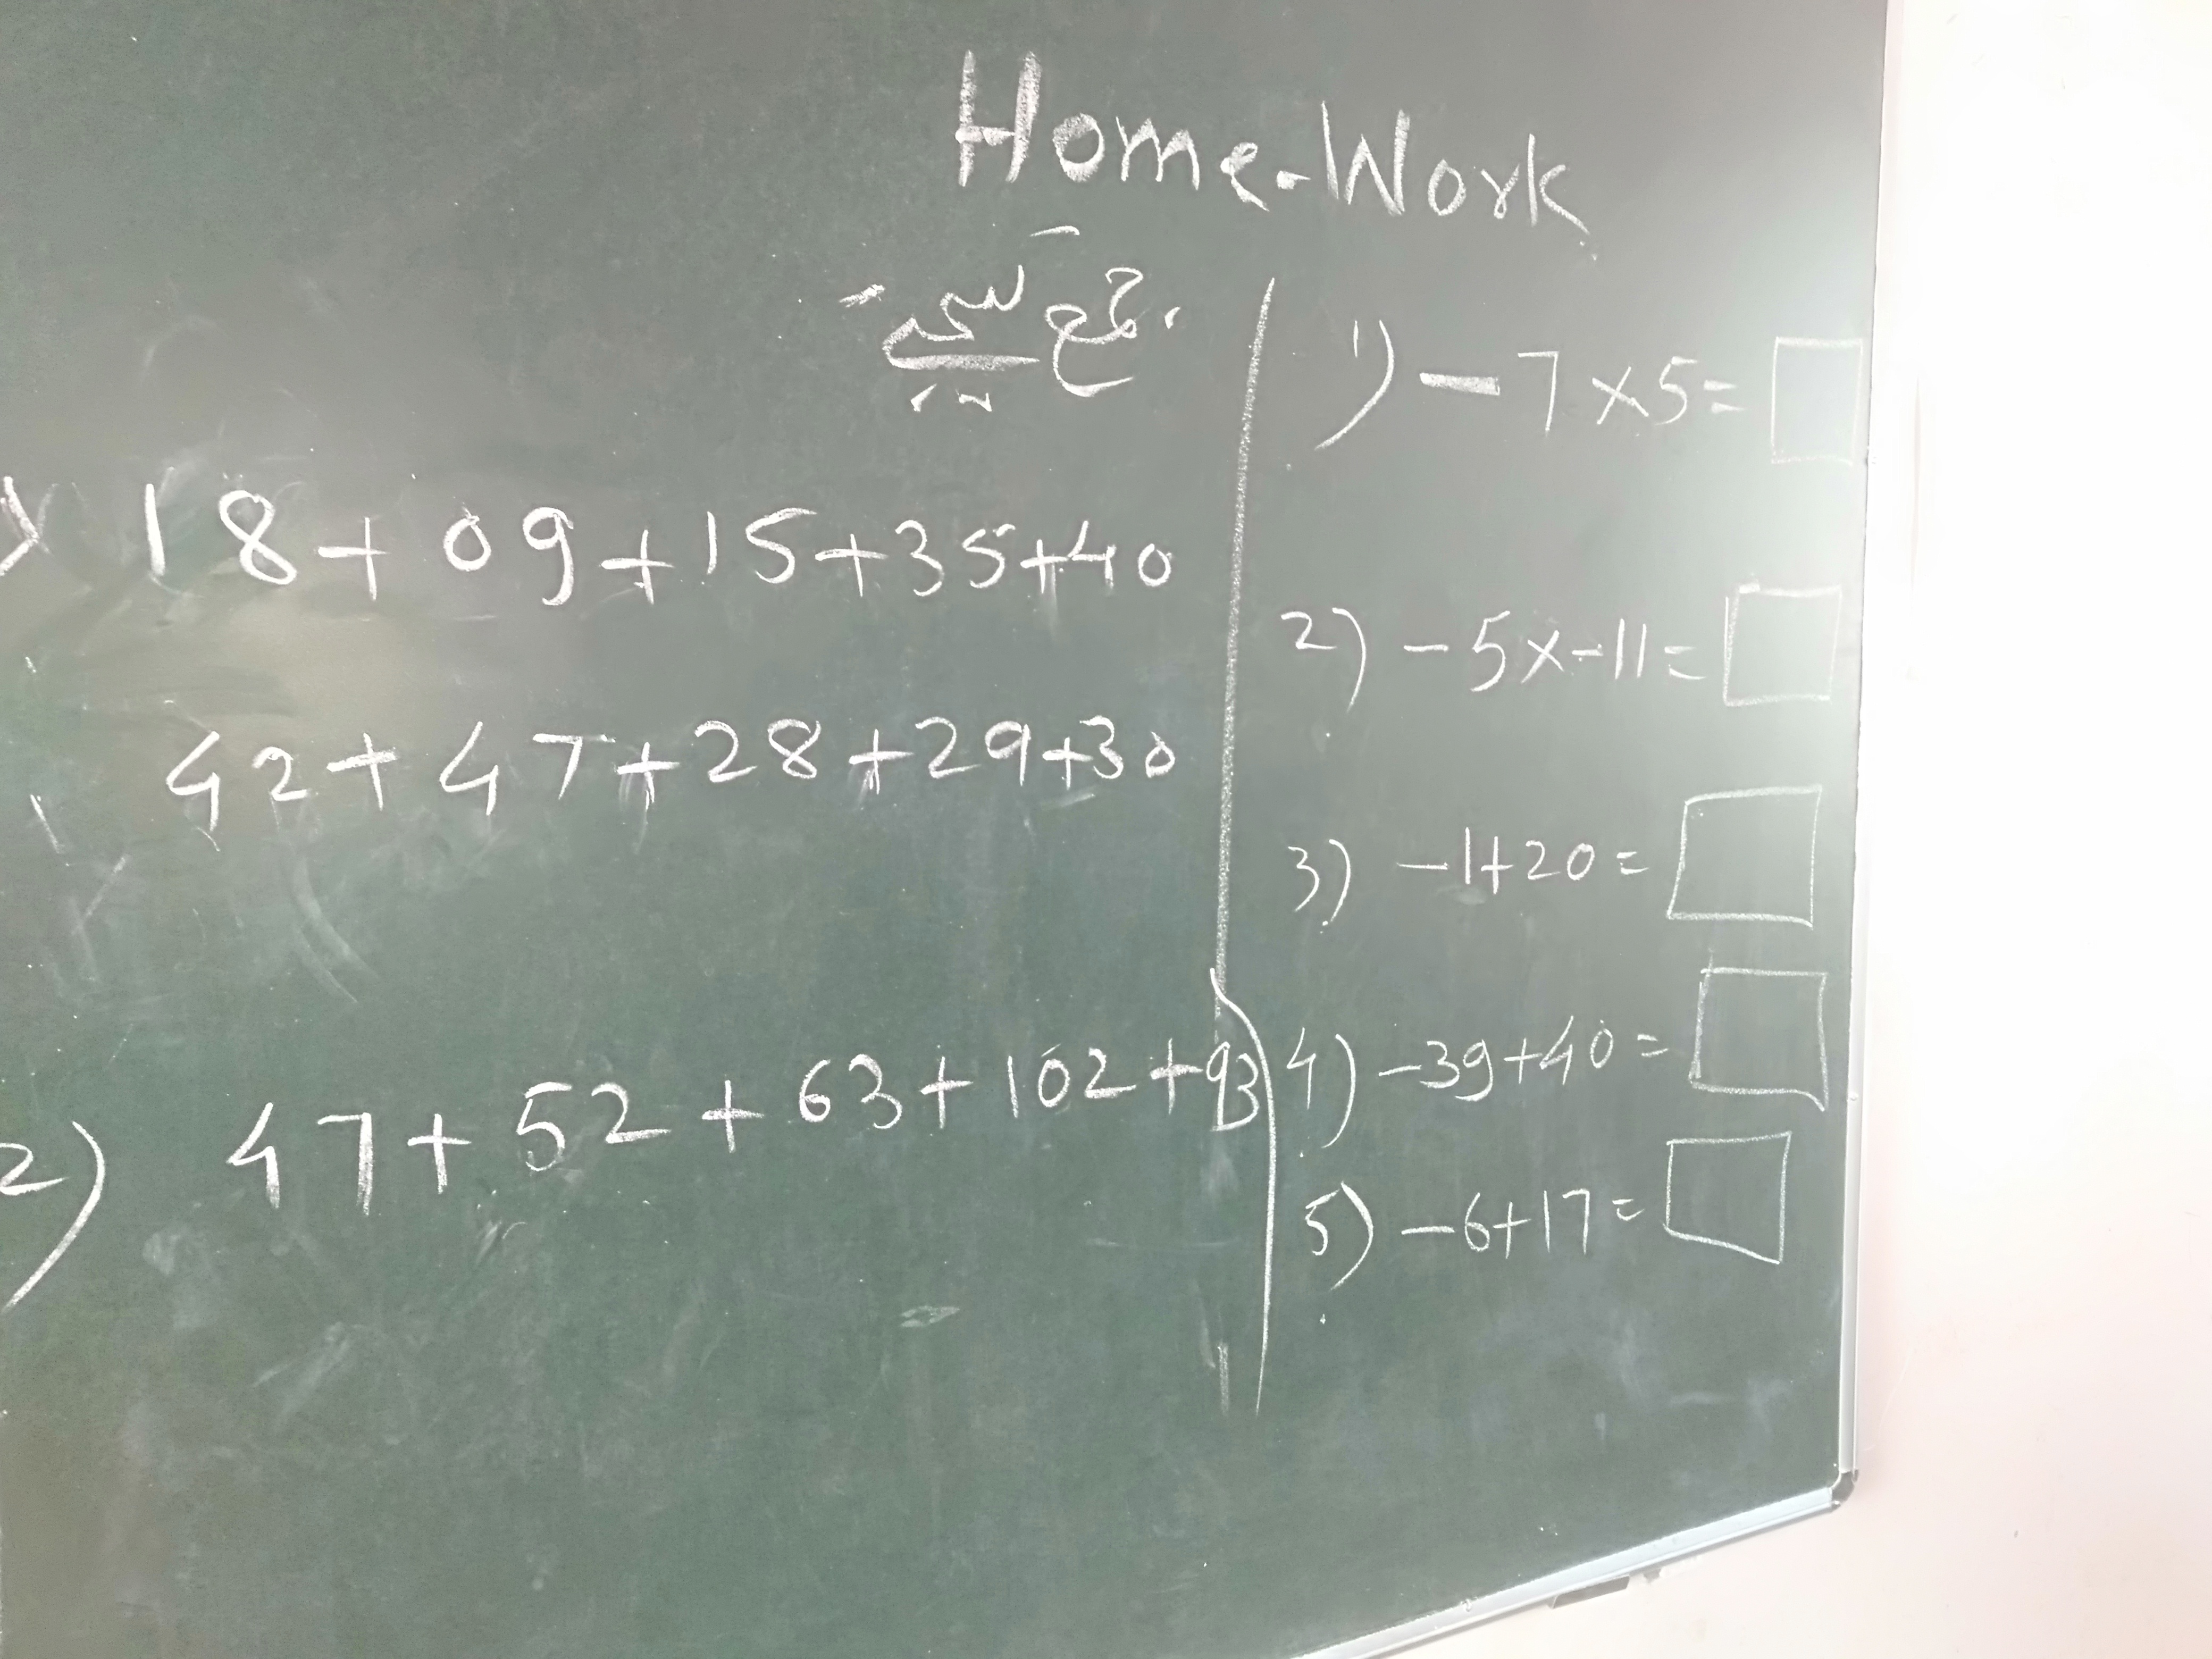 Home-Work
جمع کیجئے
18 + 09 + 15 + 35 + 40
42 + 47 + 28 + 29 + 30
2) 47 + 52 + 63 + 102 + 93
1) - 7 x 5 =
2) - 5 x - 11 =
3) - 1 + 20 =
4) - 39 + 40 =
5) - 6 + 17 =